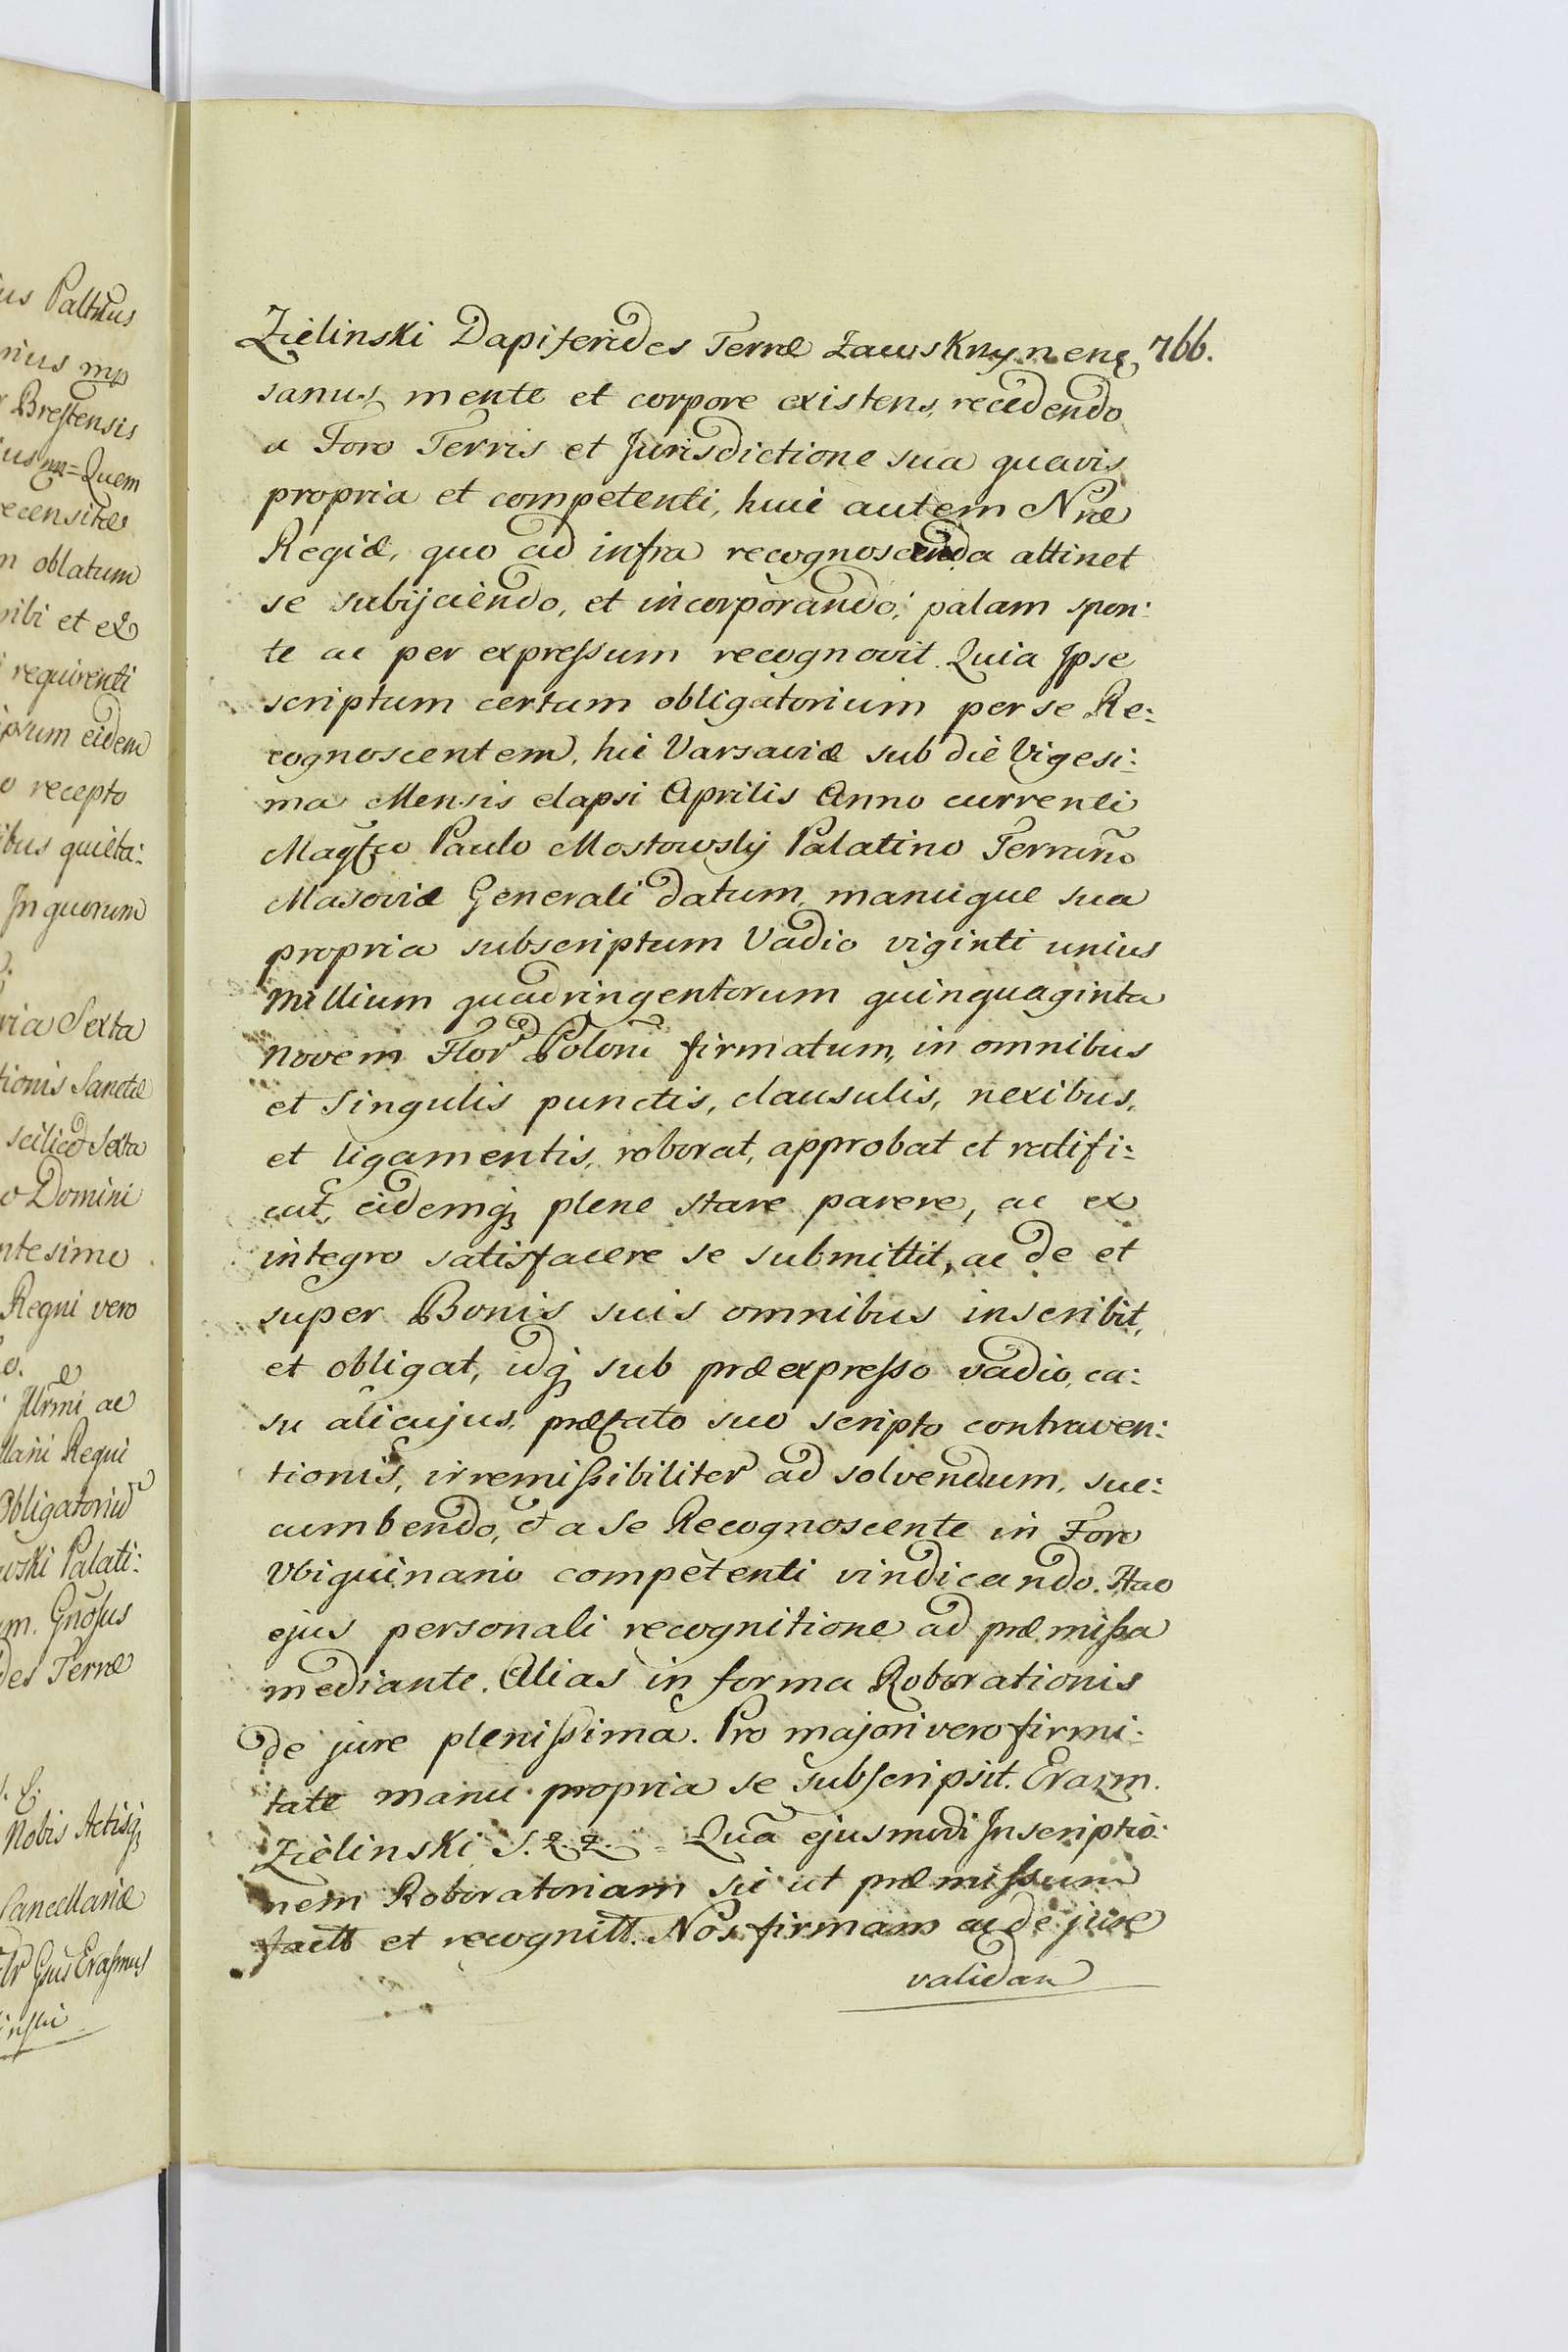 ius Palthus
nius mp
Brestensis
ius mp = Quem
recensitæ
m oblatum
sibi et ex
requirenti
ipsum eidem
o recepto
ibus quieta:
In quorum
ria Sexta
tionis Sanctæ
scilicet Sexta
o Domini
ntesimo
Regni vero
Illrmi ac
llani Regni
Obligatorium
wski Palati:
m. Gnosus
des Terræ
Nobis Actisq;
Cancellariæ
Gnus Erasmus
inski
766.
Zielinski Dapiferides Terræ Zawskrzynens,
sanus mente et corpore existens, recedendo
a Foro Terris et Jurisdictione sua quavis
propria et competenti, huic autem Nræ
Regiæ, quo ad infra recognoscenda attinet
se subijciendo, et incorporando; palam spon:
te ac per expressum recognovit. Quia Ipse
scriptum certum obligatorium per se Re:
cognoscentem, hic Varsaviæ sub die Vigesi:
ma Mensis elapsi Aprilis Anno currenti
Magfco Paulo Mostowskij Palatino Terrarño
Masoviæ Generali datum, manuque sua
propria subscriptum Vadio viginti unius
millium quadringentorum quinquaginta
novem Flor Poloni firmatum, in omnibus
et singulis punctis, clausulis, nexibus,
et ligamentis, roborat, approbat et ratifi:
cat, eidemq; plene stare parere, ac ex
integro satisfacere se submittit, ac de et
super Bonis suis omnibus inscribit,
et obligat, idq; sub præexpresso vadio, ca:
su alicujus, præfato suo scripto contraven:
tionis, irremissibiliter ad solvendum, suc:
cumbendo, et a se Recognoscente in Foro
Ubiquinario competenti vindicando. Hac
ejus personali recognitione ad præmissa
mediante. Alias in forma Roborationis
de jure plenissima. Pro majori vero firmi:
tate manu propria se subscripsit. Erazm.
Zielinski S. Z. Z. = Qua ejusmodi Inscriptio:
nem Roboratoriam sic ut præmissum
factt et recognitt. Nos firmam ac de jure
validam